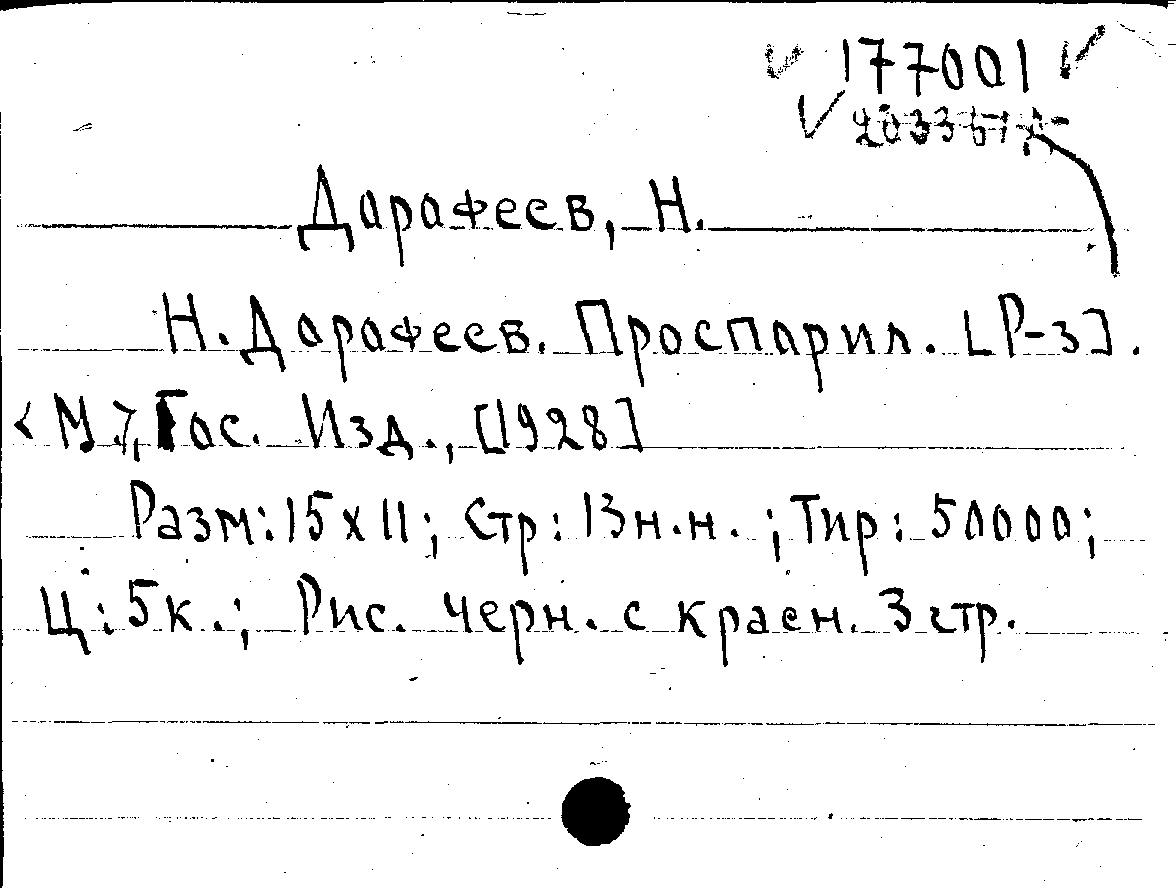 177001
Дарафеев, Н.
Н. Дарафеев. Проспарил. [Р-з].
<М.>, Гос. Изд., [1928]
Разм: 15 х 11; Стр: 13 н.н. ; Тир: 50000;
Ц: 5 к.; Рис. черн. с красн. 3 стр.